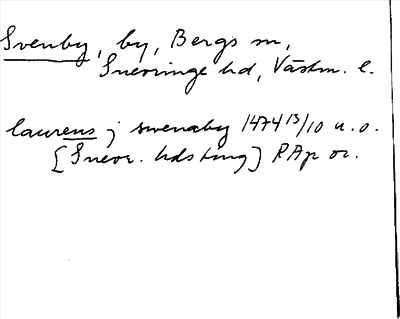 Svenby, by, Bergs sn,
Snevringe hd, Västm. l.
laurens j swenaby 1474 13/10 u.o.
[Snevr. hdsting] RAp or.